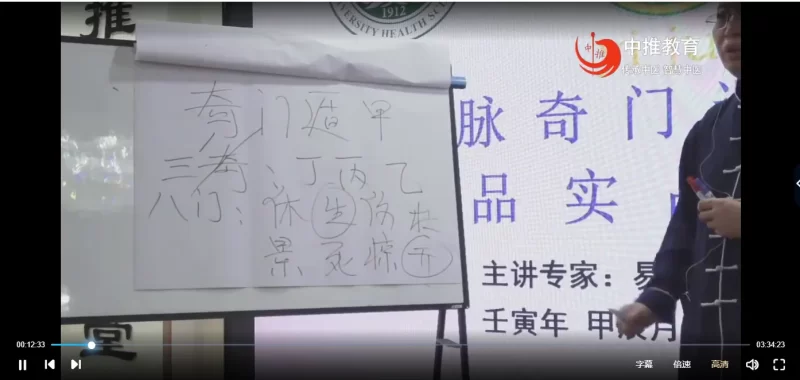 推
1912
中推教育
奇门遁甲
三奇：丁丙乙
八门：休生伤杜
景死惊开
脉奇门
品实
主讲专家：易
壬寅年 甲辰月
堂
00:12:33
03:34:23
字幕 倍速 高清